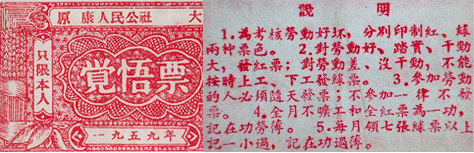 原康人民公社 大
只限本人
覺悟票
一九五九年
說明
1.為考核勞動好坏,分別印制紅、綠
兩种票色。 2.對勞動好、踏實、干勁
大,發紅票;對勞動差、沒干勁,不能
按時上工、下工發綠票。 3.參加勞動
的人必須隨天發票;不參加一律不發
票。 4.全月不曠工和全紅票為一功,
記在功勞簿。 5.每月領七張綠票以上
記一小過,記在功過簿。